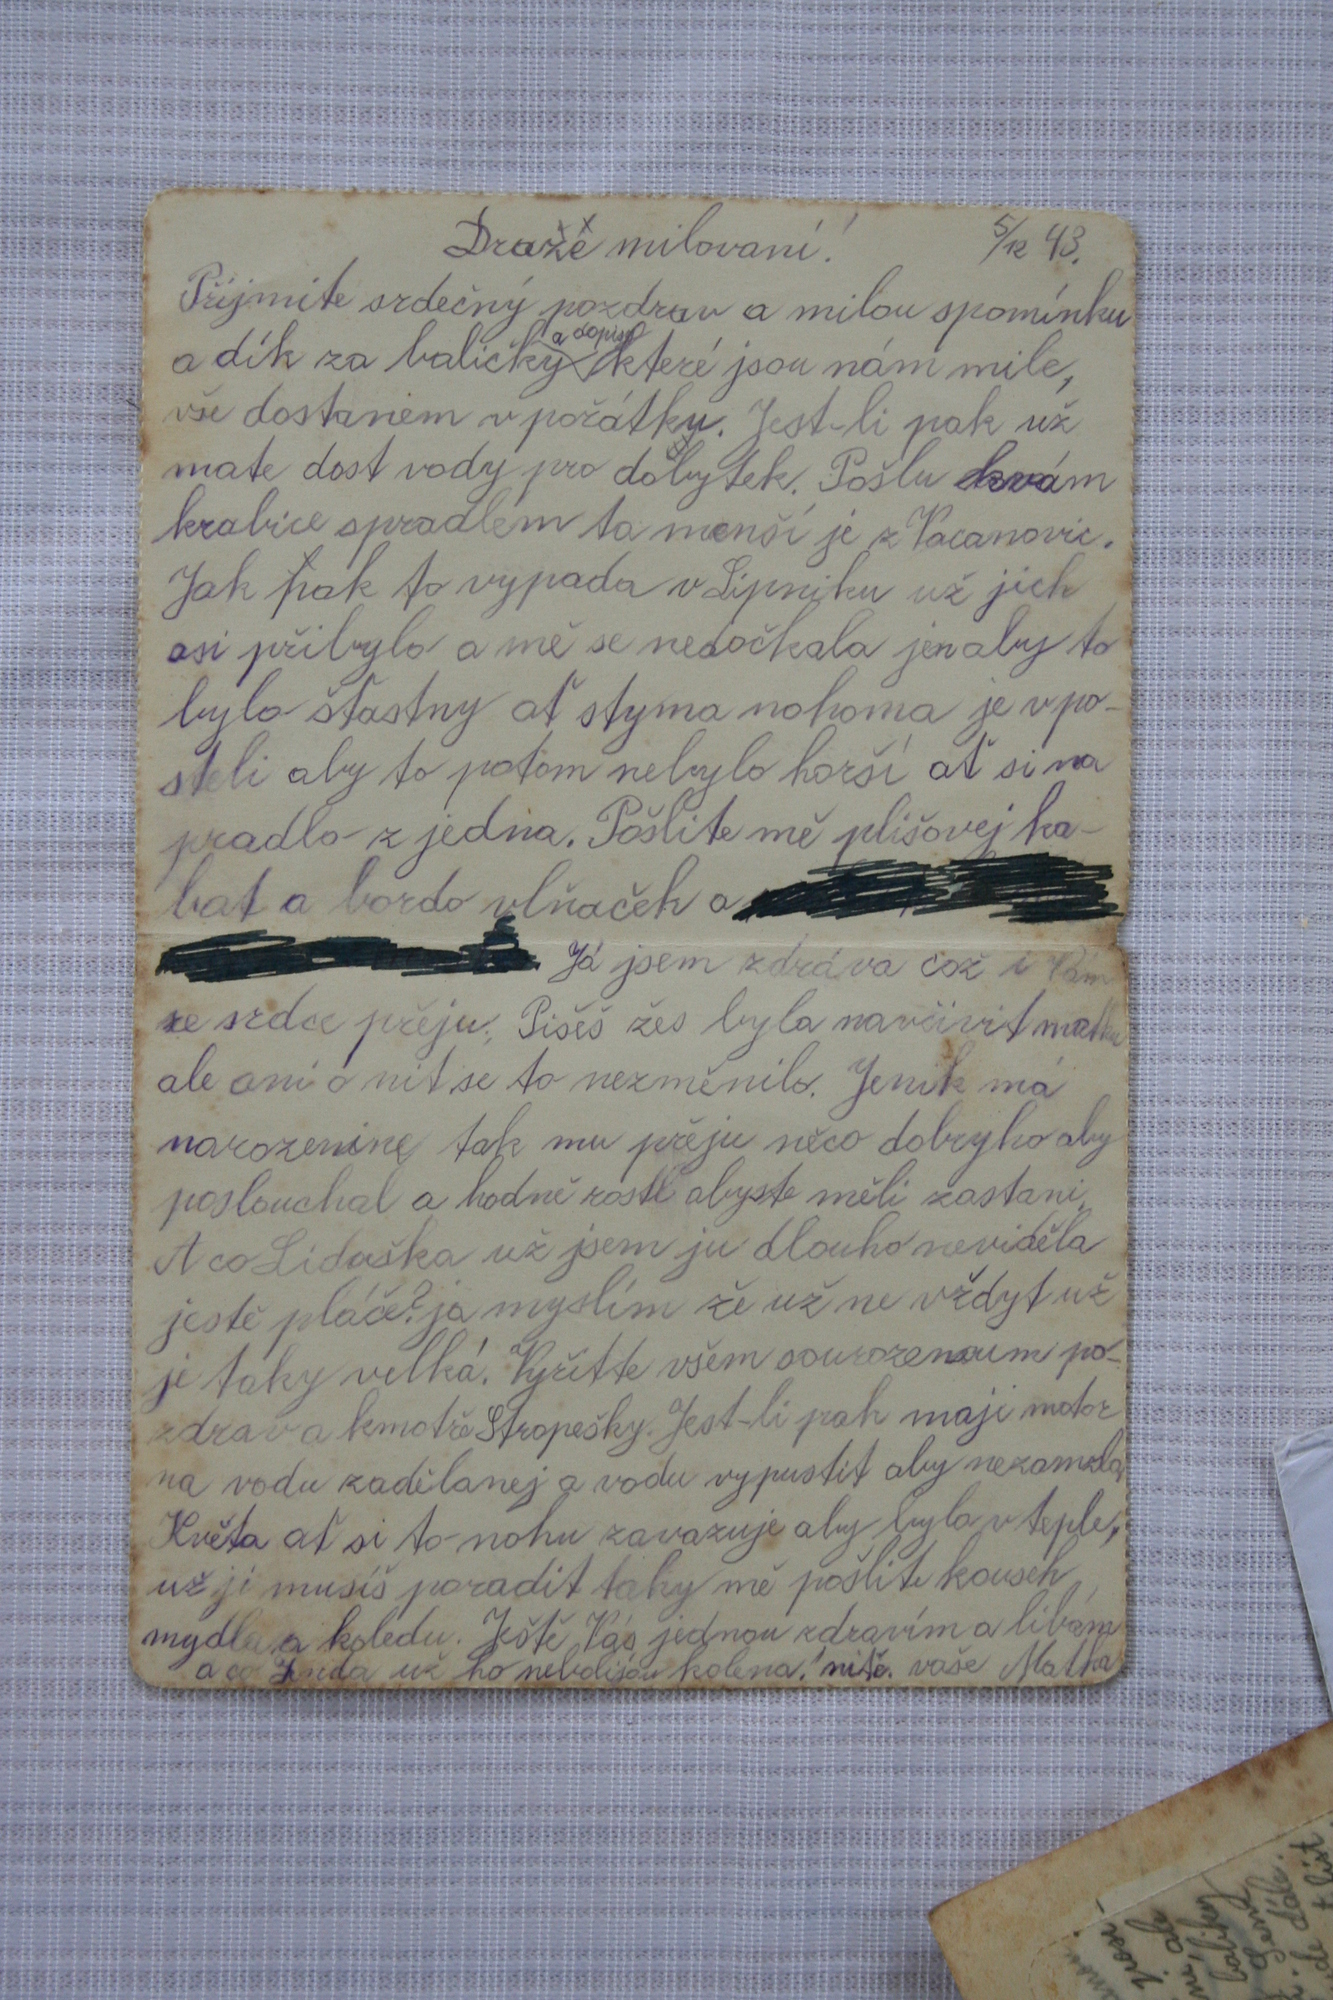 Dražé milovaní! 5/12 43.
Přijmite srdečný pozdrav a milou spomínku
a dík za baličky a dopisy které jsou nám milé,
vše dostanem v pořátku. Jest-li pak už
mate dost vody pro dobytek. Pošlu vám
krabice spradlem ta menší je z Vacanovic.
Jak pak to vypada v Lipniku už jich
asi přibylo a mě se nedočkala jen aby to
bylo šťastny ať styma nohoma je v po-
steli aby to potom nebylo horší ať si na
pradlo zjedna. Pošlite mě plišovej ka-
bat a bordo vlňaček a
Já jsem zdráva což i Vám
ze srdce přeju. Pišeš žes byla navčivit matku
ale ani o nit se to nezměnilo. Jenik má
narozenine tak mu přeju něco dobryho aby
poslouchal a hodně rostl abyste měli zastani.
A co Liduška už jsem ju dlouho neviděla
jestě pláče? ja myslím že už ne vždyt už
je taky velká. Vyřitte všem sourozencum po-
zdrav a kmotře Stropešky. Jest-li pak maji motor
na vodu zadělanej a vodu vypustit aby nezamzla,
Květa ať si to nohu zavazuje aby byla v teple,
už ji musíš poradit taky mě pošlite kousek
mydla a koledu. Ještě Vás jednou zdravím a libám
a co už ho nebolijou kolena! nitě. vaše Matka
vosi-
ale
baliky
dále.